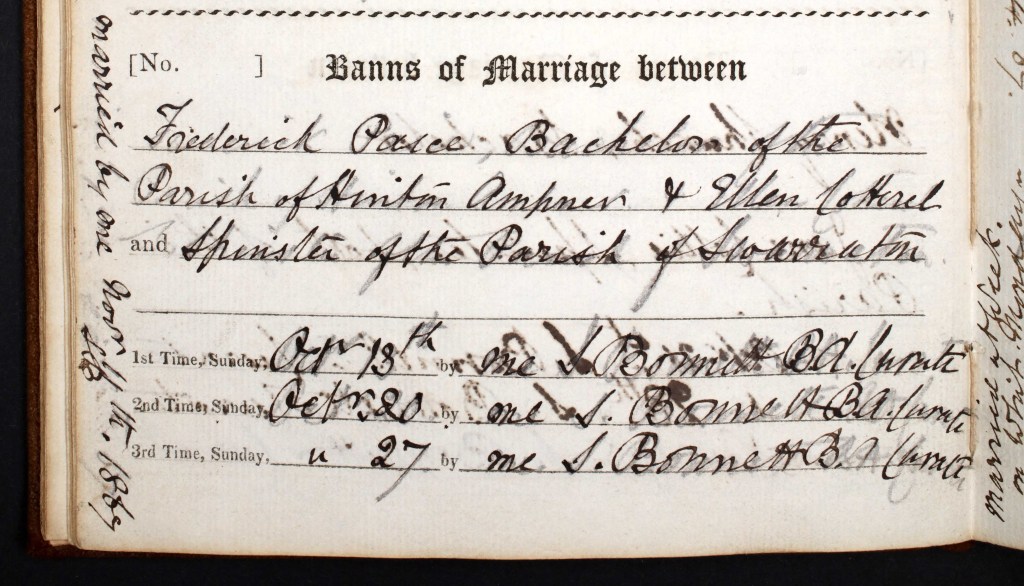 [No. ] Banns of Marriage between
Frederick Pasce Bachelor of the
Parish of Hinton Ampner & Ellen Cotterel
and Spinster of the Parish of Swarraton
1st Time, Sunday, Octr 13th by me S. Bonnett BA. Curate
2nd Time, Sunday, Octr 20 by me S. Bonnett BA. Curate
3rd Time, Sunday, " 27 by me S. Bonnett B.A Curate
married by me Novr 1889
SB
married